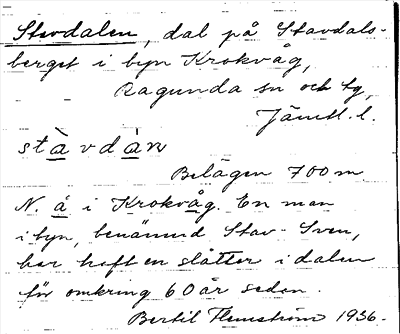 Stavdalen, dal på Stavdals-
berget i byn Krokvåg,
Ragunda sn och tg,
Jämtl. l.
stàvdàn
Belägen 700 m
N. å i Krokvåg. En man
i byn, benämnd Stav-Sven,
har haft en slåtter i dalen
för omkring 60 år sedan.
Bertil Flemström 1936.